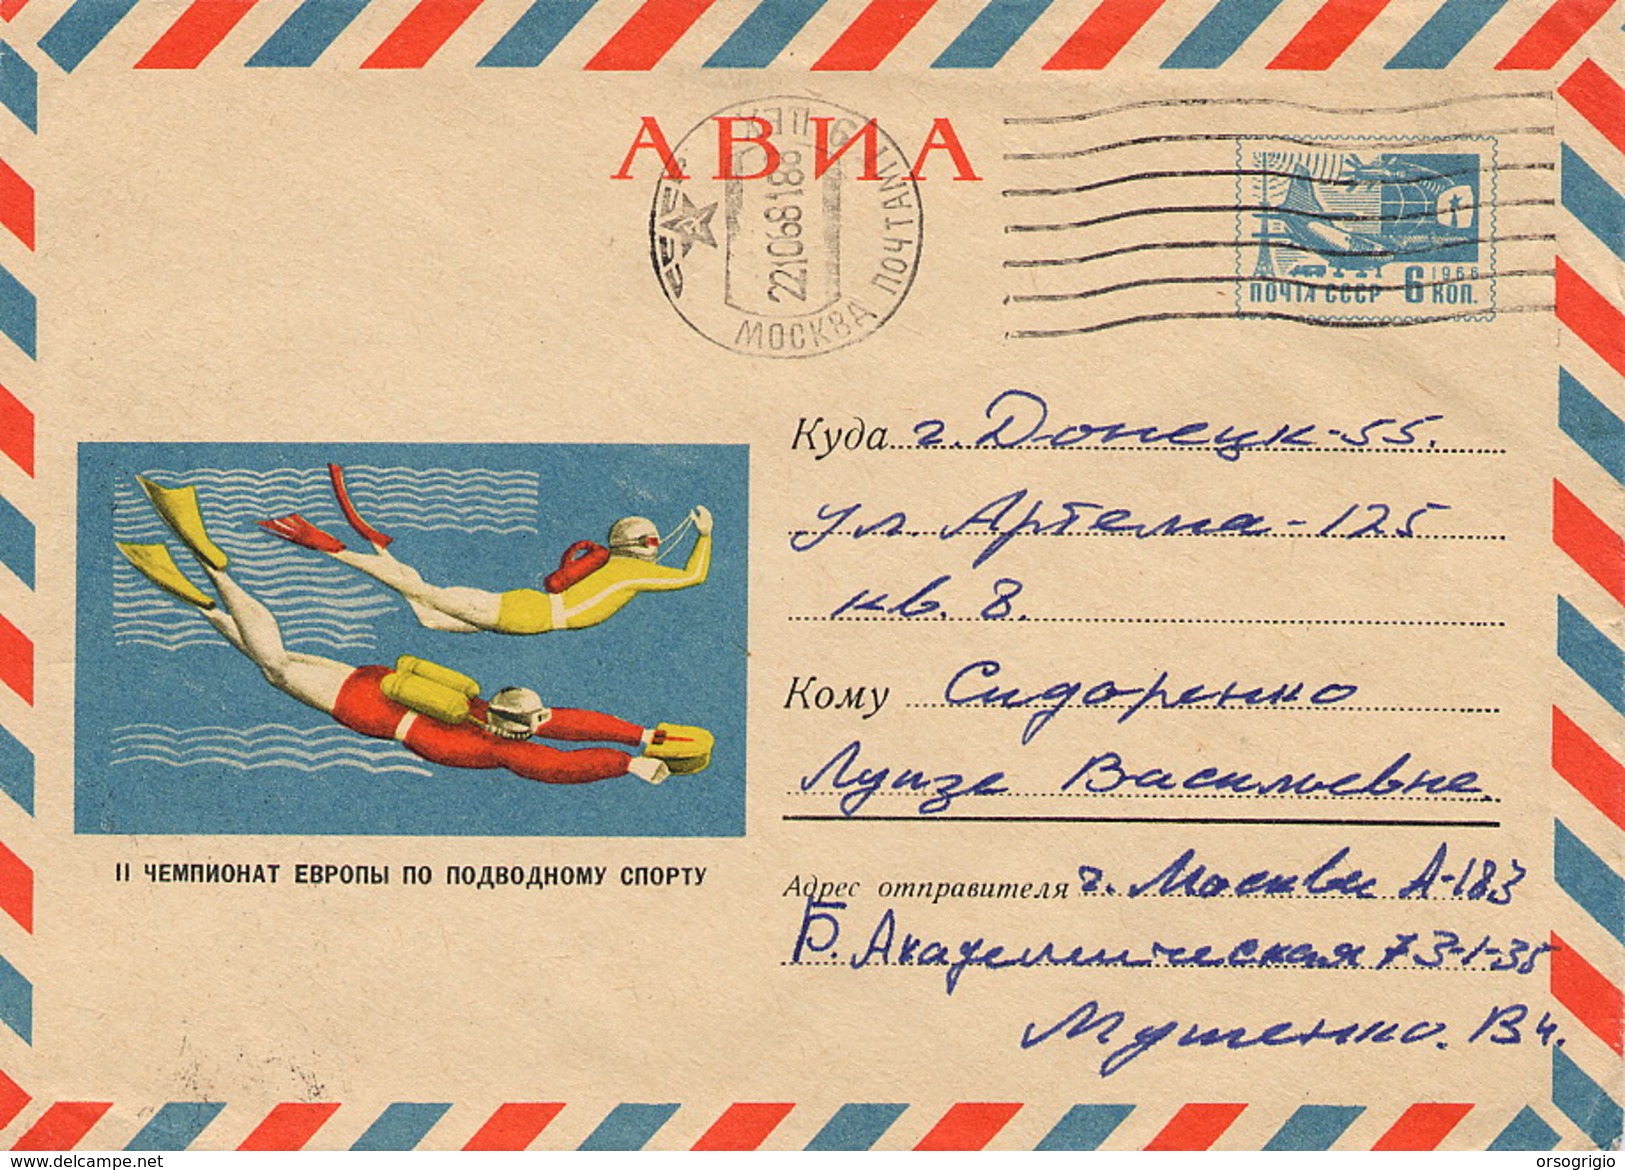 АВИА
МОСКВА ПОЧТАМТ
СССР
221068188
1966
ПОЧТА СССР 6 КОП.
Куда г. Донецк-55.
ул. Артема-125
кв. 8.
Кому Сидоренко
Луизе Васильевне.
II ЧЕМПИОНАТ ЕВРОПЫ ПО ПОДВОДНОМУ СПОРТУ
Адрес отправителя г. Москва А-183
Б. Академическая 73-1-35
В И.
delcampe.net
orsogrigio